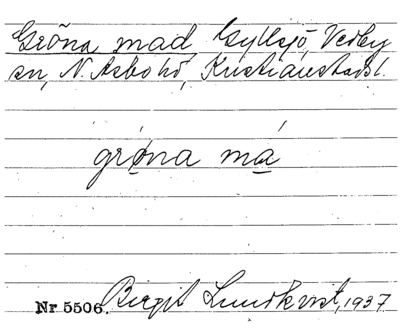 Gröna mad, Gyllsjö, Vedby
sn, N. Åsbo hd, Kristianstads l.
gróna má
Nr 5506. Birgit Lundkvist, 1937